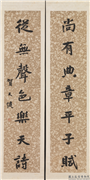 尚有典章平子賦
從無聲色樂天詩